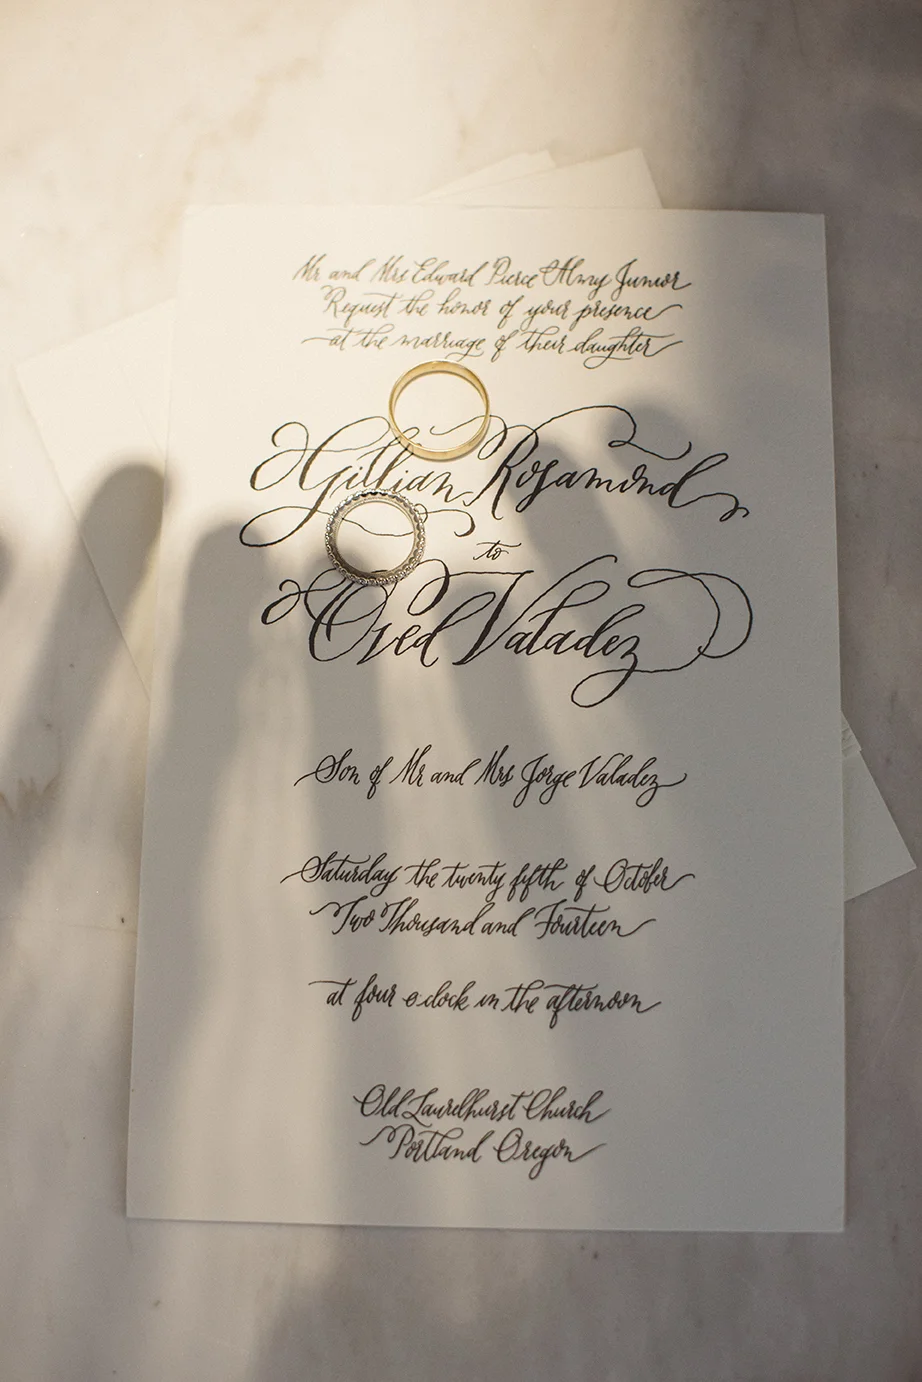 Mr and Mrs Edward Pierce Almy Junior
Request the honor of your presence
at the marriage of their daughter
Gillian Rosamond
to
Oved Valadez
Son of Mr and Mrs Jorge Valadez
Saturday the twenty fifth of October
Two Thousand and Fourteen
at four o clock in the afternoon
Old Laurelhurst Church
Portland Oregon